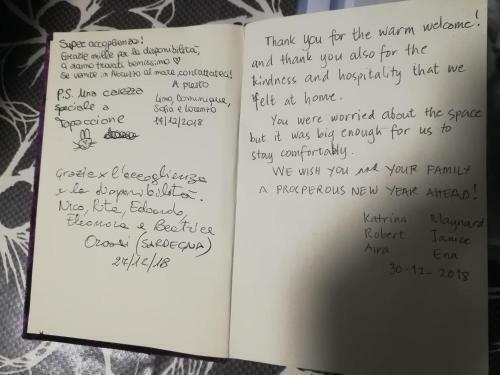 Super accoglienza!
Grazie mille per la disponibilità,
ci siamo trovati benissimo ♡
Se venite in Abruzzo al mare contattateci!
A presto
P.S. Una carezza
speciale a
Topaccione
Dominique,
Sofia e Lorenzo
19/12/2018
Grazie x l'accoglienza
e la disponibilità.
Nico, Rita, Edoardo,
Eleonora e Beatrice
Orosei (SARDEGNA)
27/12/18
Thank you for the warm welcome!
and thank you also for the
kindness and hospitality that we
felt at home.
You were worried about the space
but it was big enough for us to
stay comfortably.
WE WISH YOU and YOUR FAMILY
A PROSPEROUS NEW YEAR AHEAD!
Katrina Maynard
Robert Janice
Aira Ena
30-12-2018